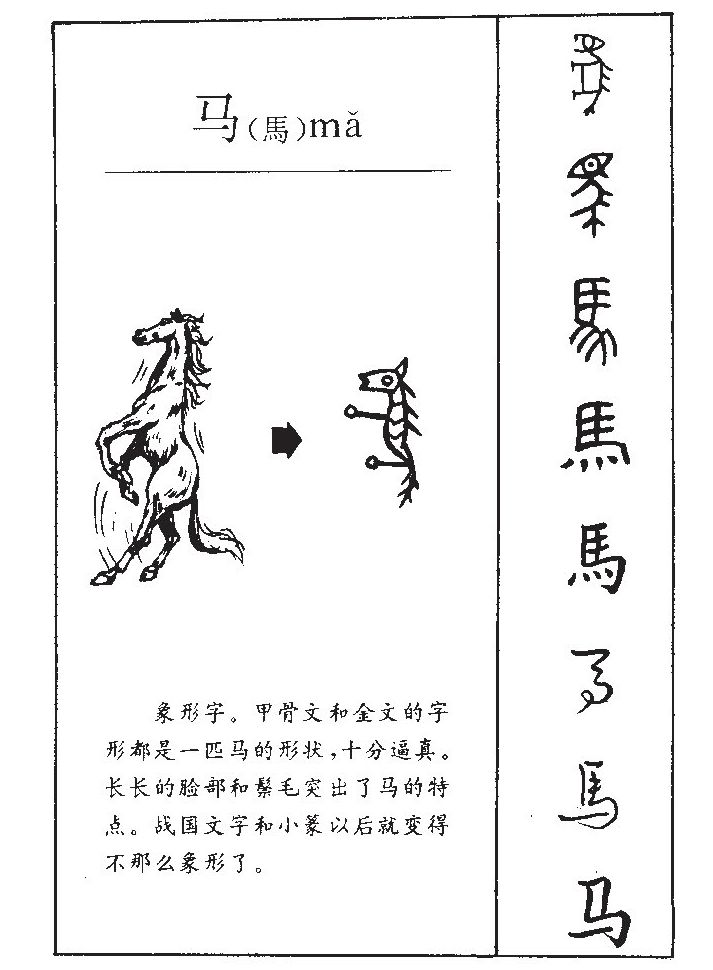 马(馬)mǎ
象形字。甲骨文和金文的字
形都是一匹马的形状，十分逼真。
长长的脸部和鬃毛突出了马的特
点。战国文字和小篆以后就变得
不那么象形了。
馬
馬
馬
马
馬
马